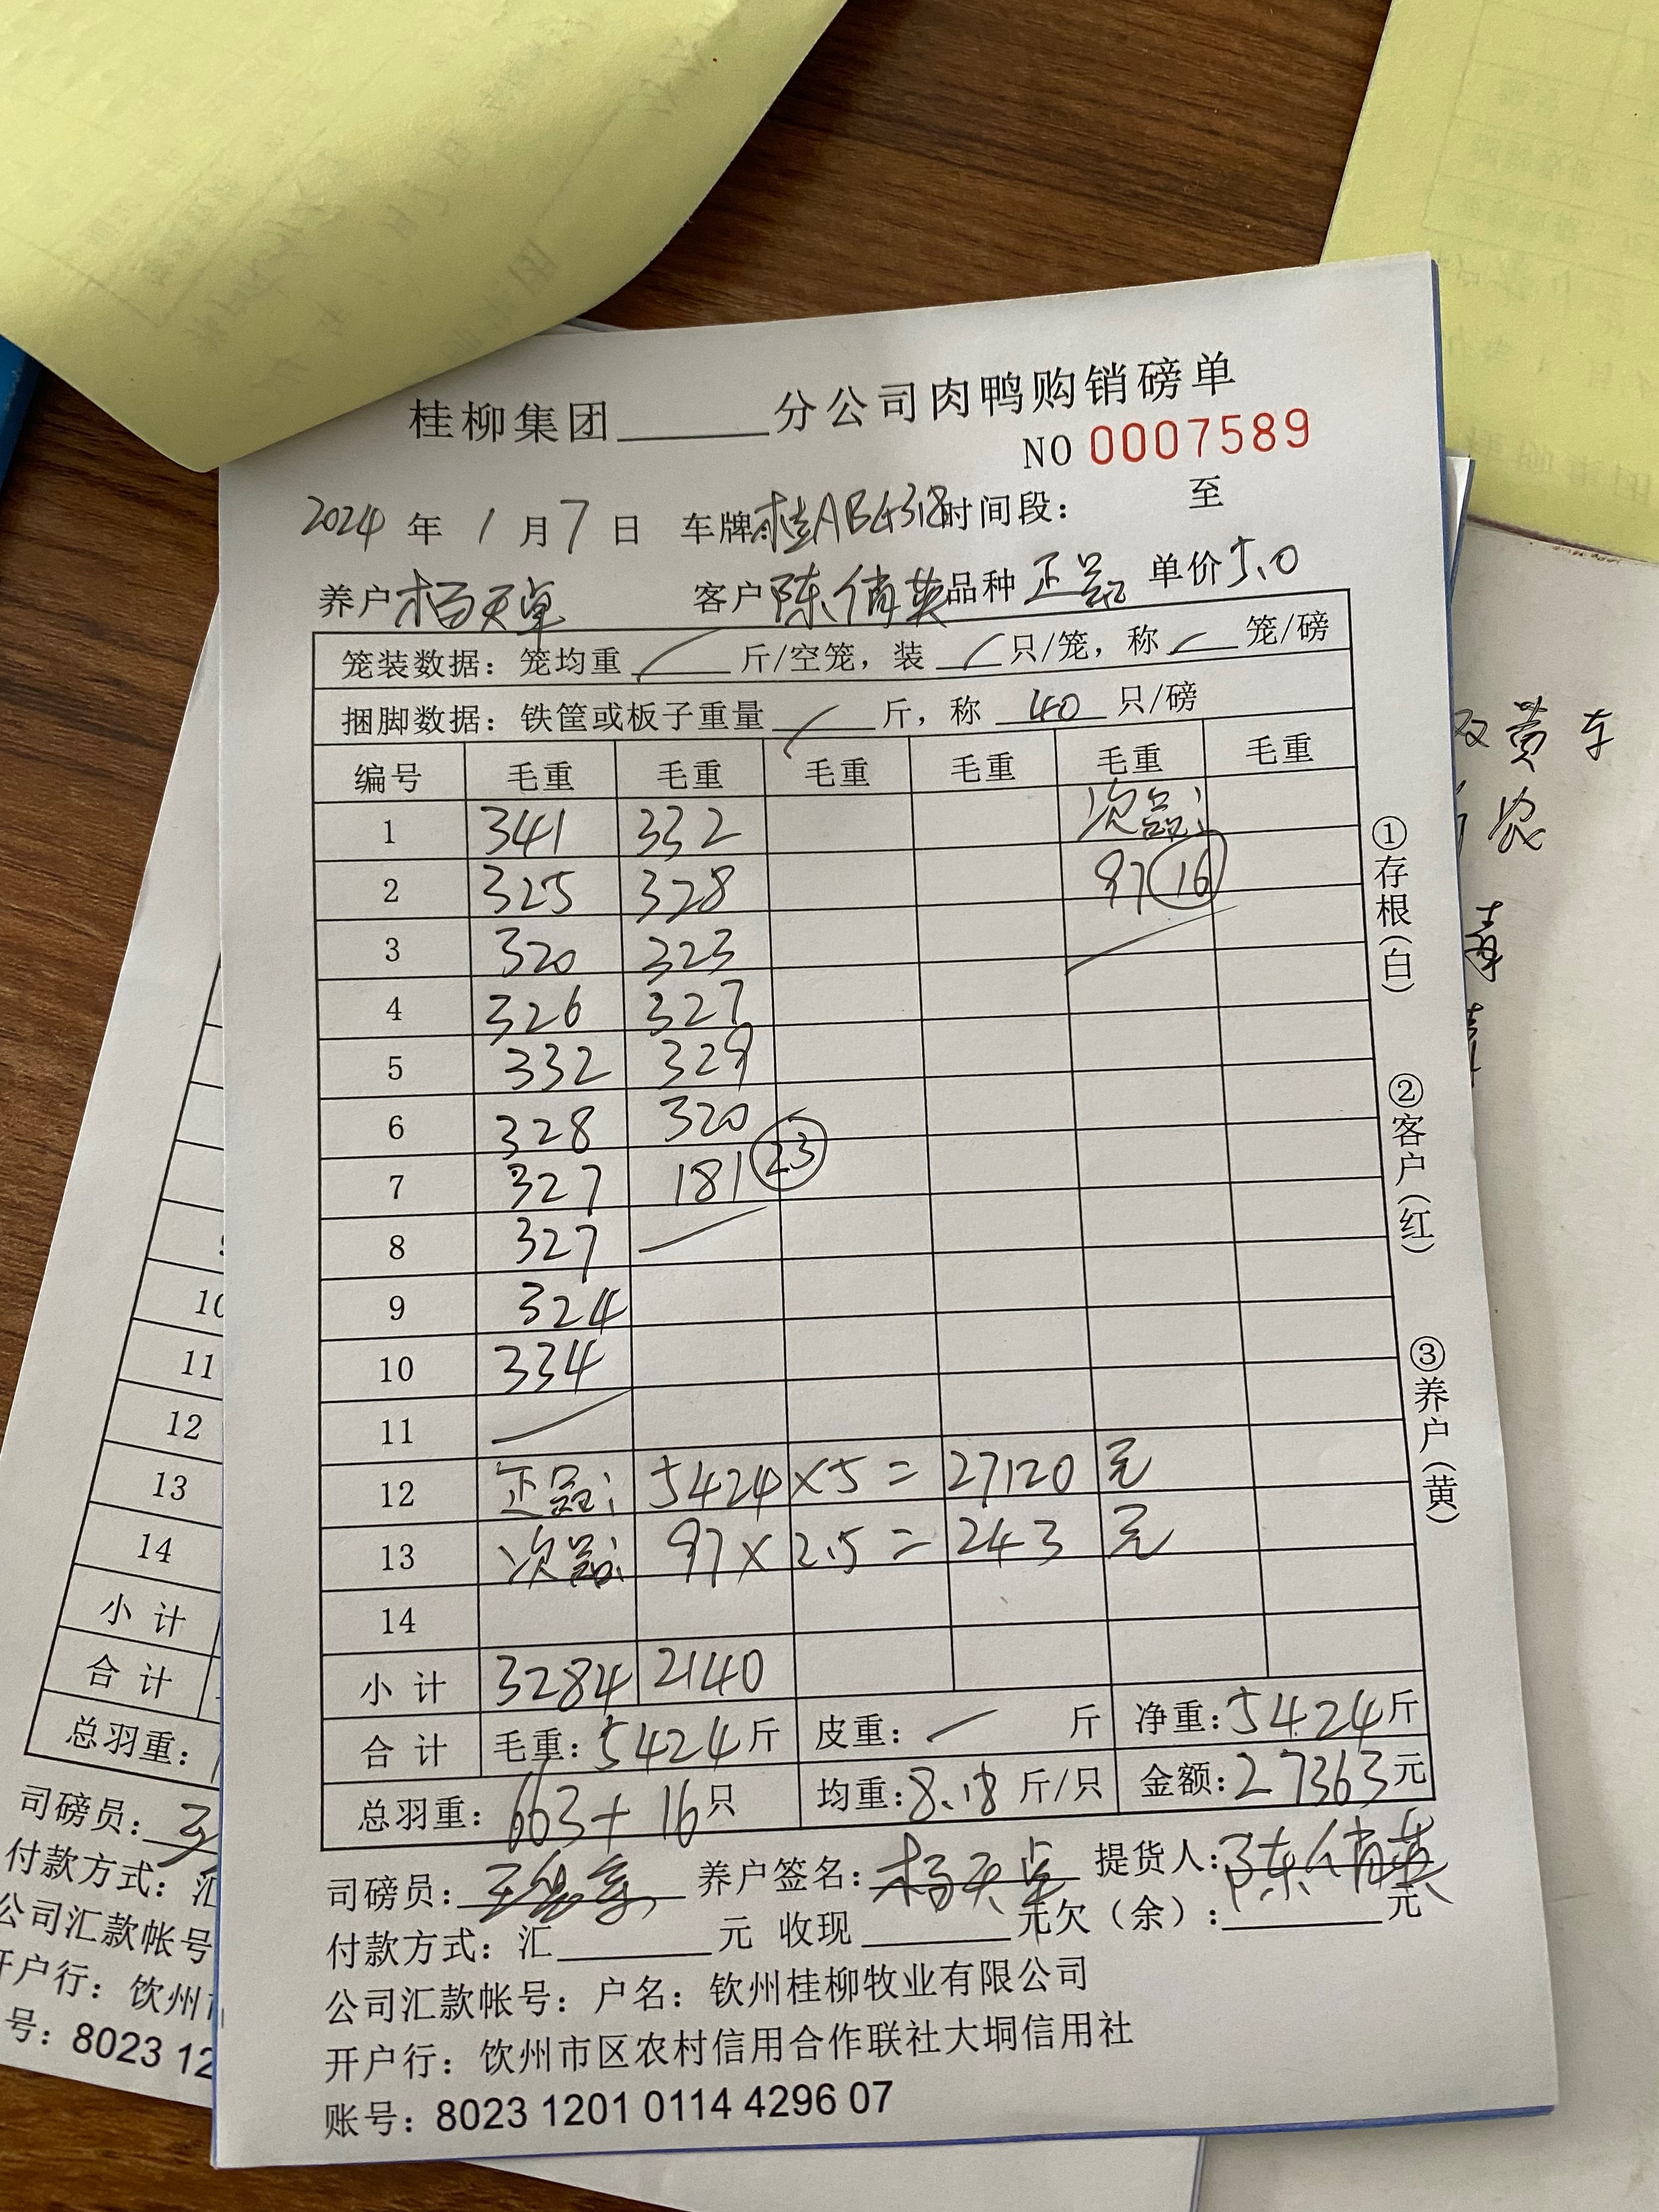 桂柳集团______分公司肉鸭购销磅单
NO 0007589
2024 年 1 月 7 日 车牌:桂AB4318 时间段: 至
养户 杨天卓 客户 陈俏英 品种 正品 单价 5.0
笼装数据: 笼均重 / 斤/空笼, 装 / 只/笼, 称 / 笼/磅
捆脚数据: 铁筐或板子重量 / 斤, 称 40 只/磅
编号 毛重 毛重 毛重 毛重 毛重 毛重
1 341 332 次品:
2 325 328 97 16
3 320 323
4 326 327
5 332 329
6 328 320
7 327 181 23
8 327
9 324
10 334
11
12 正品: 5424 × 5 = 27120 元
13 次品: 97 × 2.5 = 243 元
14
小计 3284 2140
合计 毛重: 5424 斤 皮重: / 斤 净重: 5424 斤
总羽重: 663 + 16 只 均重: 8.18 斤/只 金额: 27363 元
司磅员: 养户签名: 杨天卓 提货人: 陈俏英
付款方式: 汇______元 收现______元 欠(余):______元
公司汇款帐号: 户名: 钦州桂柳牧业有限公司
开户行: 钦州市区农村信用合作联社大垌信用社
账号: 8023 1201 0114 4296 07
①存根(白)
②客户(红)
③养户(黄)
黄车
农
10
11
12
13
14
小计
合计
总羽重:
司磅员:
付款方式: 汇
公司汇款帐号
开户行: 钦州
号: 8023 12